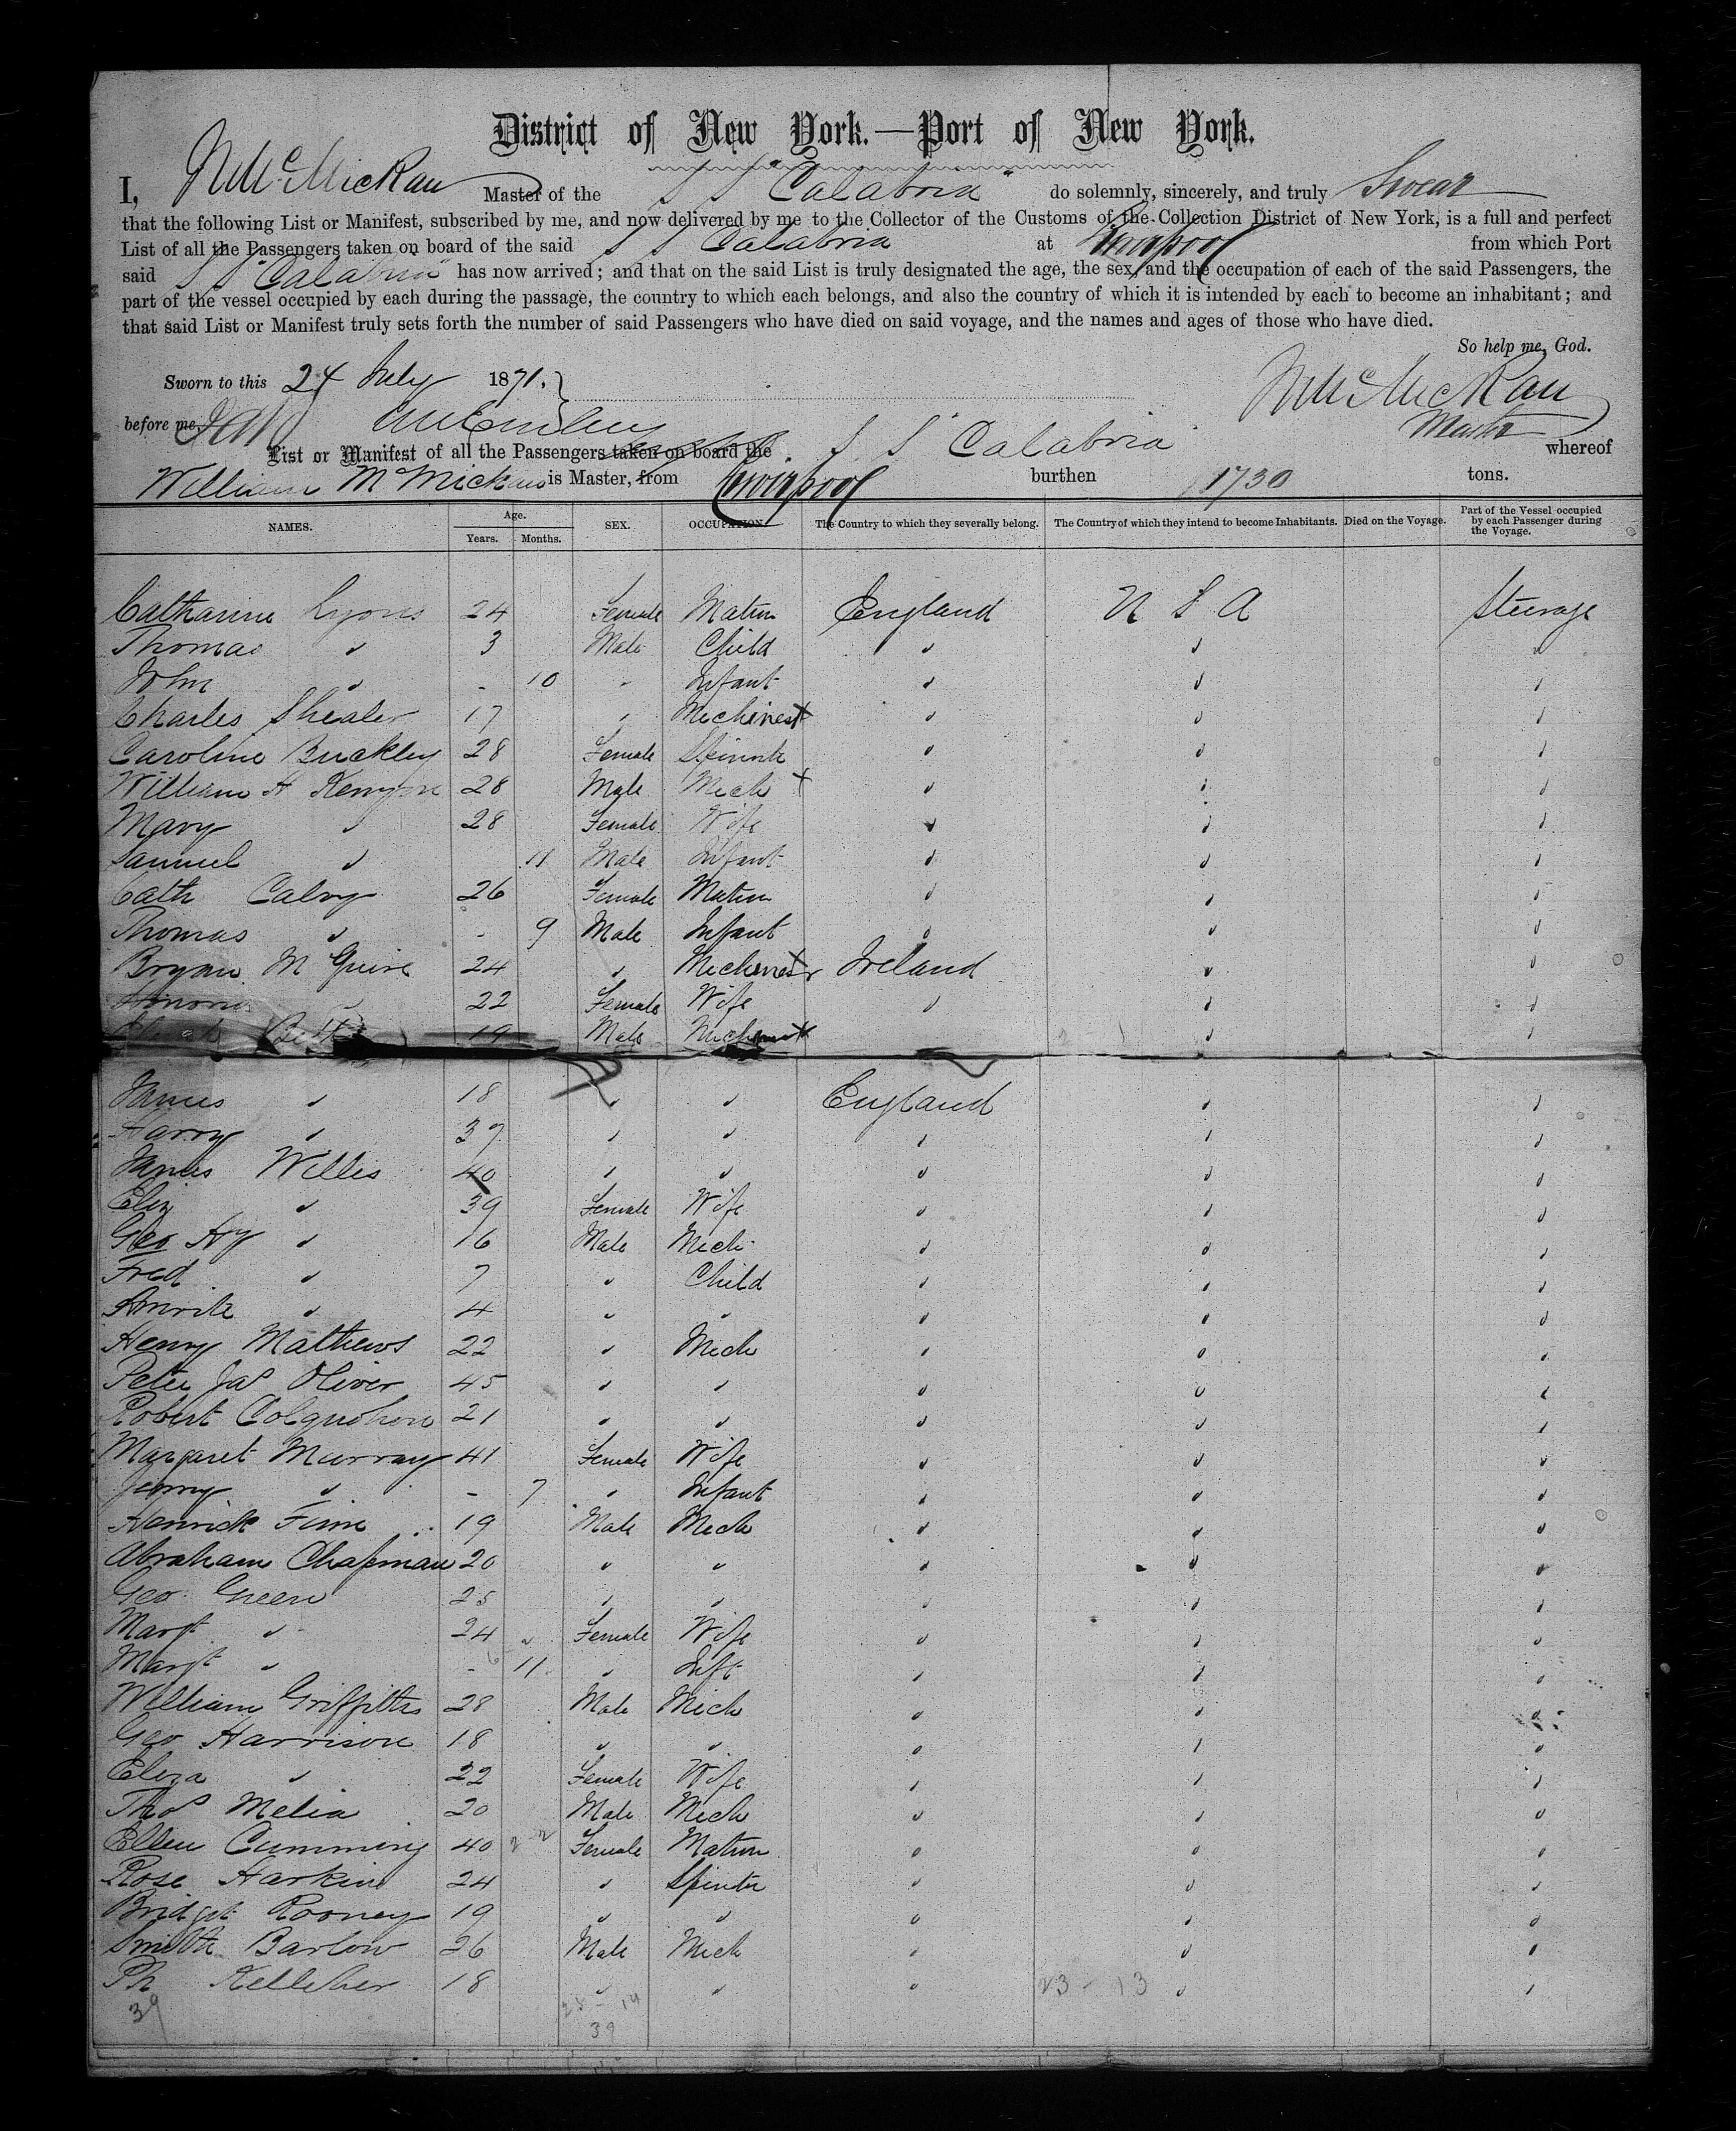 District of New York.—Port of New York.
I, W McMickan Master of the S S "Calabria" do solemnly, sincerely, and truly Swear
that the following List or Manifest, subscribed by me, and now delivered by me to the Collector of the Customs of the Collection District of New York, is a full and perfect
List of all the Passengers taken on board of the said S S Calabria at Liverpool from which Port
said S S "Calabria" has now arrived; and that on the said List is truly designated the age, the sex, and the occupation of each of the said Passengers, the
part of the vessel occupied by each during the passage, the country to which each belongs, and also the country of which it is intended by each to become an inhabitant; and
that said List or Manifest truly sets forth the number of said Passengers who have died on said voyage, and the names and ages of those who have died.
So help me, God.
Sworn to this 24 July 1871. W McMickan
before me, Master
List or Manifest of all the Passengers taken on board the S S Calabria whereof
William McMickan is Master, from Liverpool burthen 1730 tons.
NAMES. Age. Years. Months. SEX. OCCUPATION. The Country to which they severally belong. The Country of which they intend to become Inhabitants. Died on the Voyage. Part of the Vessel occupied by each Passenger during the Voyage.
Catharine Lyons 24 Female Matron England U S A Steerage
Thomas " 3 Male Child " " "
John " - 10 " Infant " " "
Charles Shealer 17 " Mechinest " " "
Caroline Buckley 28 Female Spinster " " "
William H Kenyon 28 Male Mech " " "
Mary " 28 Female Wife " " "
Samuel " 11 Male Infant " " "
Cath Calvy 26 Female Matron " " "
Thomas " - 9 Male Infant " " "
Bryan McGuire 24 " Mechinest Ireland " "
" 22 Female Wife " " "
19 Male Mechinest " "
James " 18 " " England " "
Harry " 37 " " " " "
James Willis 40 " " " " "
Eliz " 39 Female Wife " " "
Geo Hy " 16 Male Mech " " "
Fred " 7 " Child " " "
" 4 " " " " "
Henry Mathews 22 " Mech " " "
Peter Jas Oliver 45 " " " " "
Robert Colquohon 21 " " " " "
Margaret Murray 41 Female Wife " " "
Jenny " - 7 " Infant " " "
Henrick Finn 19 Male Mech " " "
Abraham Chapman 20 " " " " "
Geo Green 25 " " " " "
Margt " 24 " Female Wife " " "
Margt " - 11 " Inft " " "
William Griffiths 28 Male Mech " " "
Geo Harrison 18 " " " " "
Eliza " 22 Female Wife " " "
Thos Melia 20 Male Mech " " "
Ellen Cumming 40 Female Matron " " "
Rose Harkin 24 " Spinster " " "
Bridget Rooney 19 " " " " "
Smith Barlow 26 Male Mech " " "
Ph Kelleher 18 " " " 23 - 13 " "
39 25 - 14
39